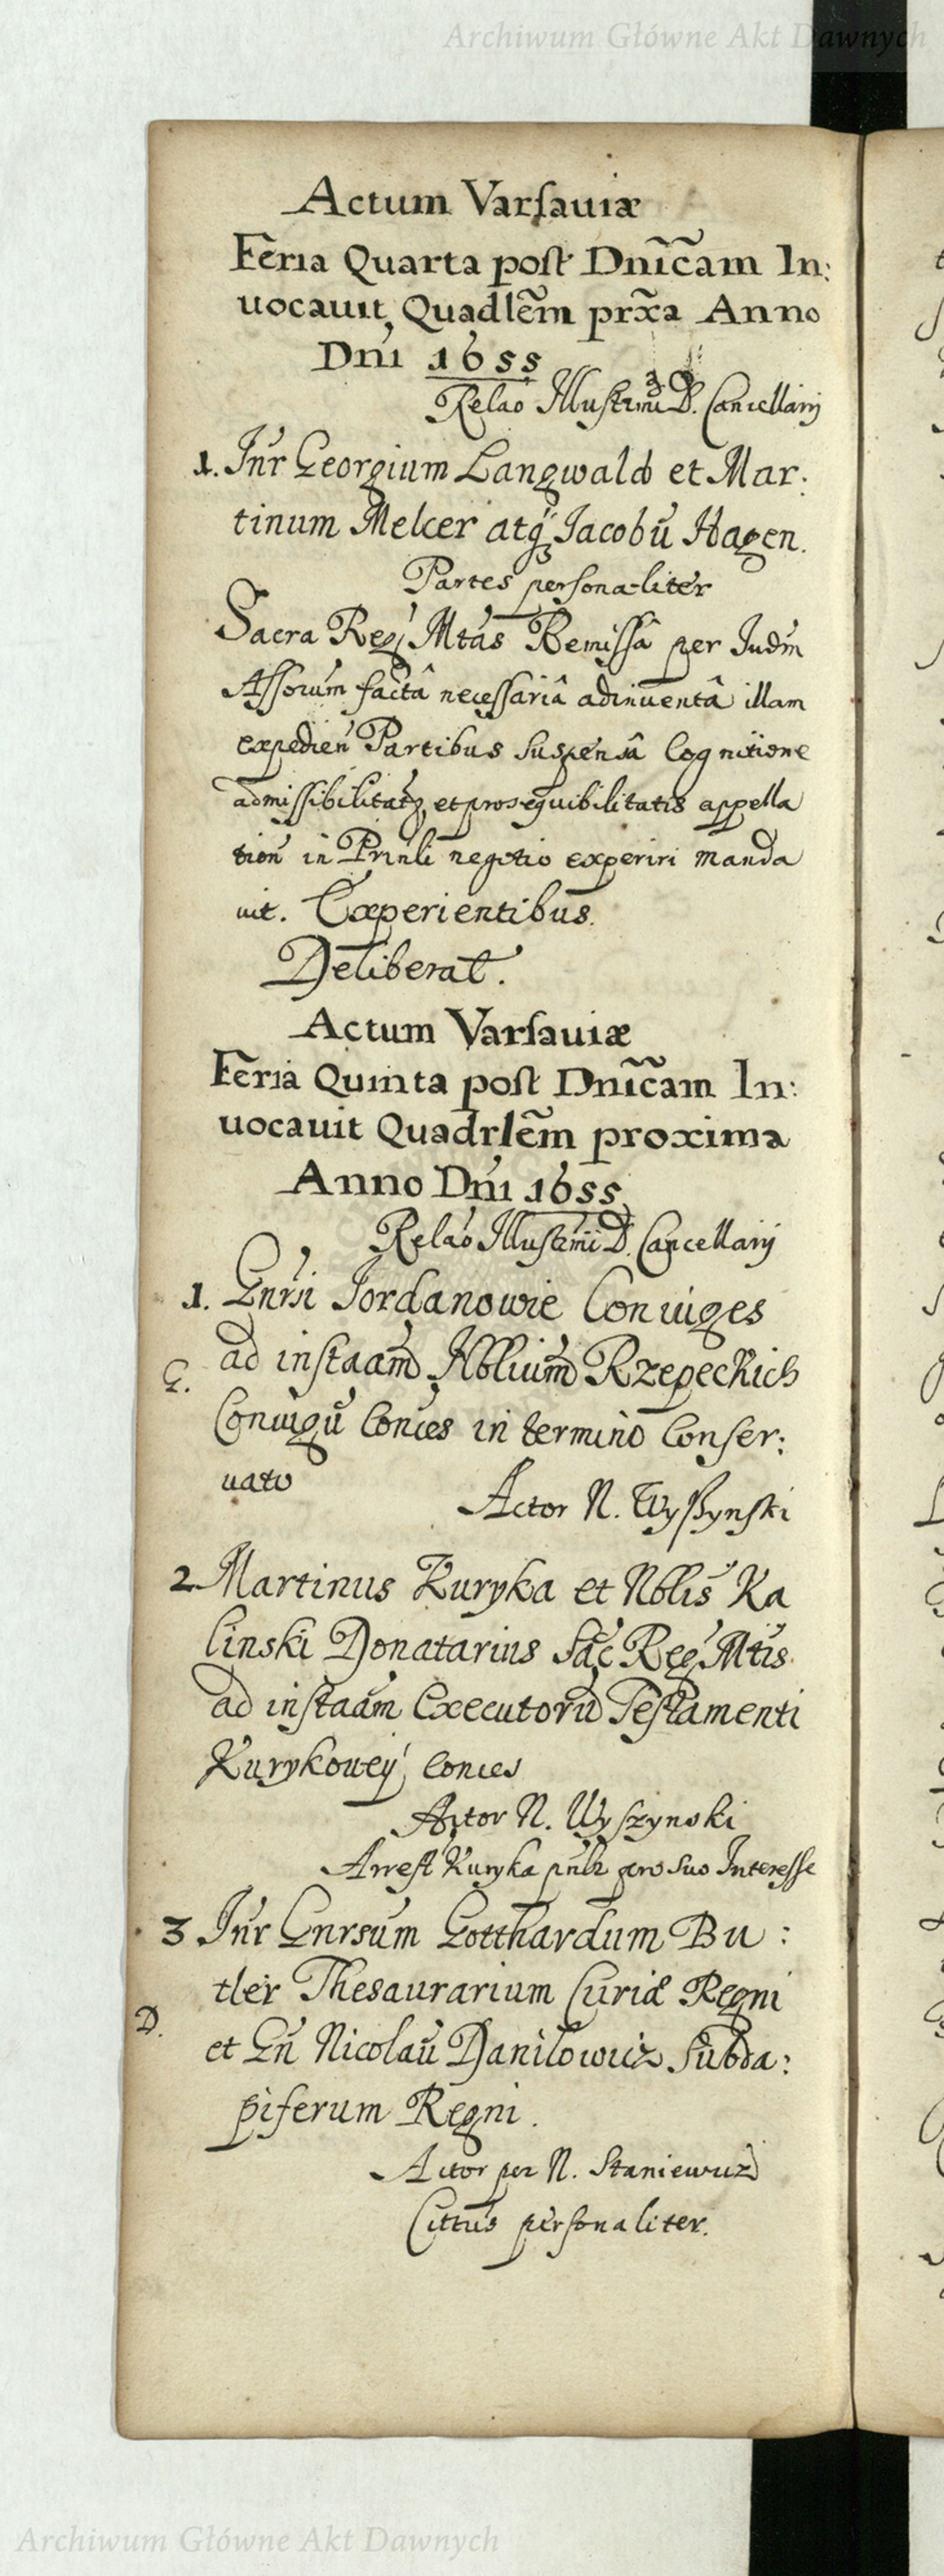 Archiwum Główne Akt Dawnych
Actum Varsaviæ
Feria Quarta post Dnicam In:
vocavit Quadlem prxa Anno
Dni 1655
Relao Illustrmi D. Cancellarij
1. Inr Georgium Langwald et Mar:
tinum Melcer atq Iacobu Hagen.
Partes personaliter
Sacra Reg Mtas Remissâ per Iudm
Assorum factâ necessariâ adinventâ illam
expedien Partibus suspensâ Cognitione
admissibilitatis et prosequibilitatis appella
tion in Prinli negotio experiri manda
vit. Experientibus.
Deliberat.
Actum Varsaviæ
Feria Quinta post Dnicam In:
vocavit Quadrlem proxima
Anno Dni 1655
Relao Illustrmi D. Cancellarij
1. Gnrsi Iordanowie Coniuges
ad instaam Nblium Rzepeckich
G.
Coniugu Conces in termino Conser:
vato
Actor N. Wyszynski
2. Martinus Kuryka et Nblis Ka
linski Donatarius Sac Reg Mtis
ad instaam Executoru Testamenti
Kurykowey Conces
Actor N. Wyszynski
Arrest Kuryka pro suo Interesse
3 Inr Gnrsum Gotthardum Bu:
tler Thesaurarium Curiæ Regni
D.
et Gn Nicolau Danilowicz Subda:
piferum Regni.
Actor per N. Staniewicz
Cittus personaliter.
Archiwum Główne Akt Dawnych